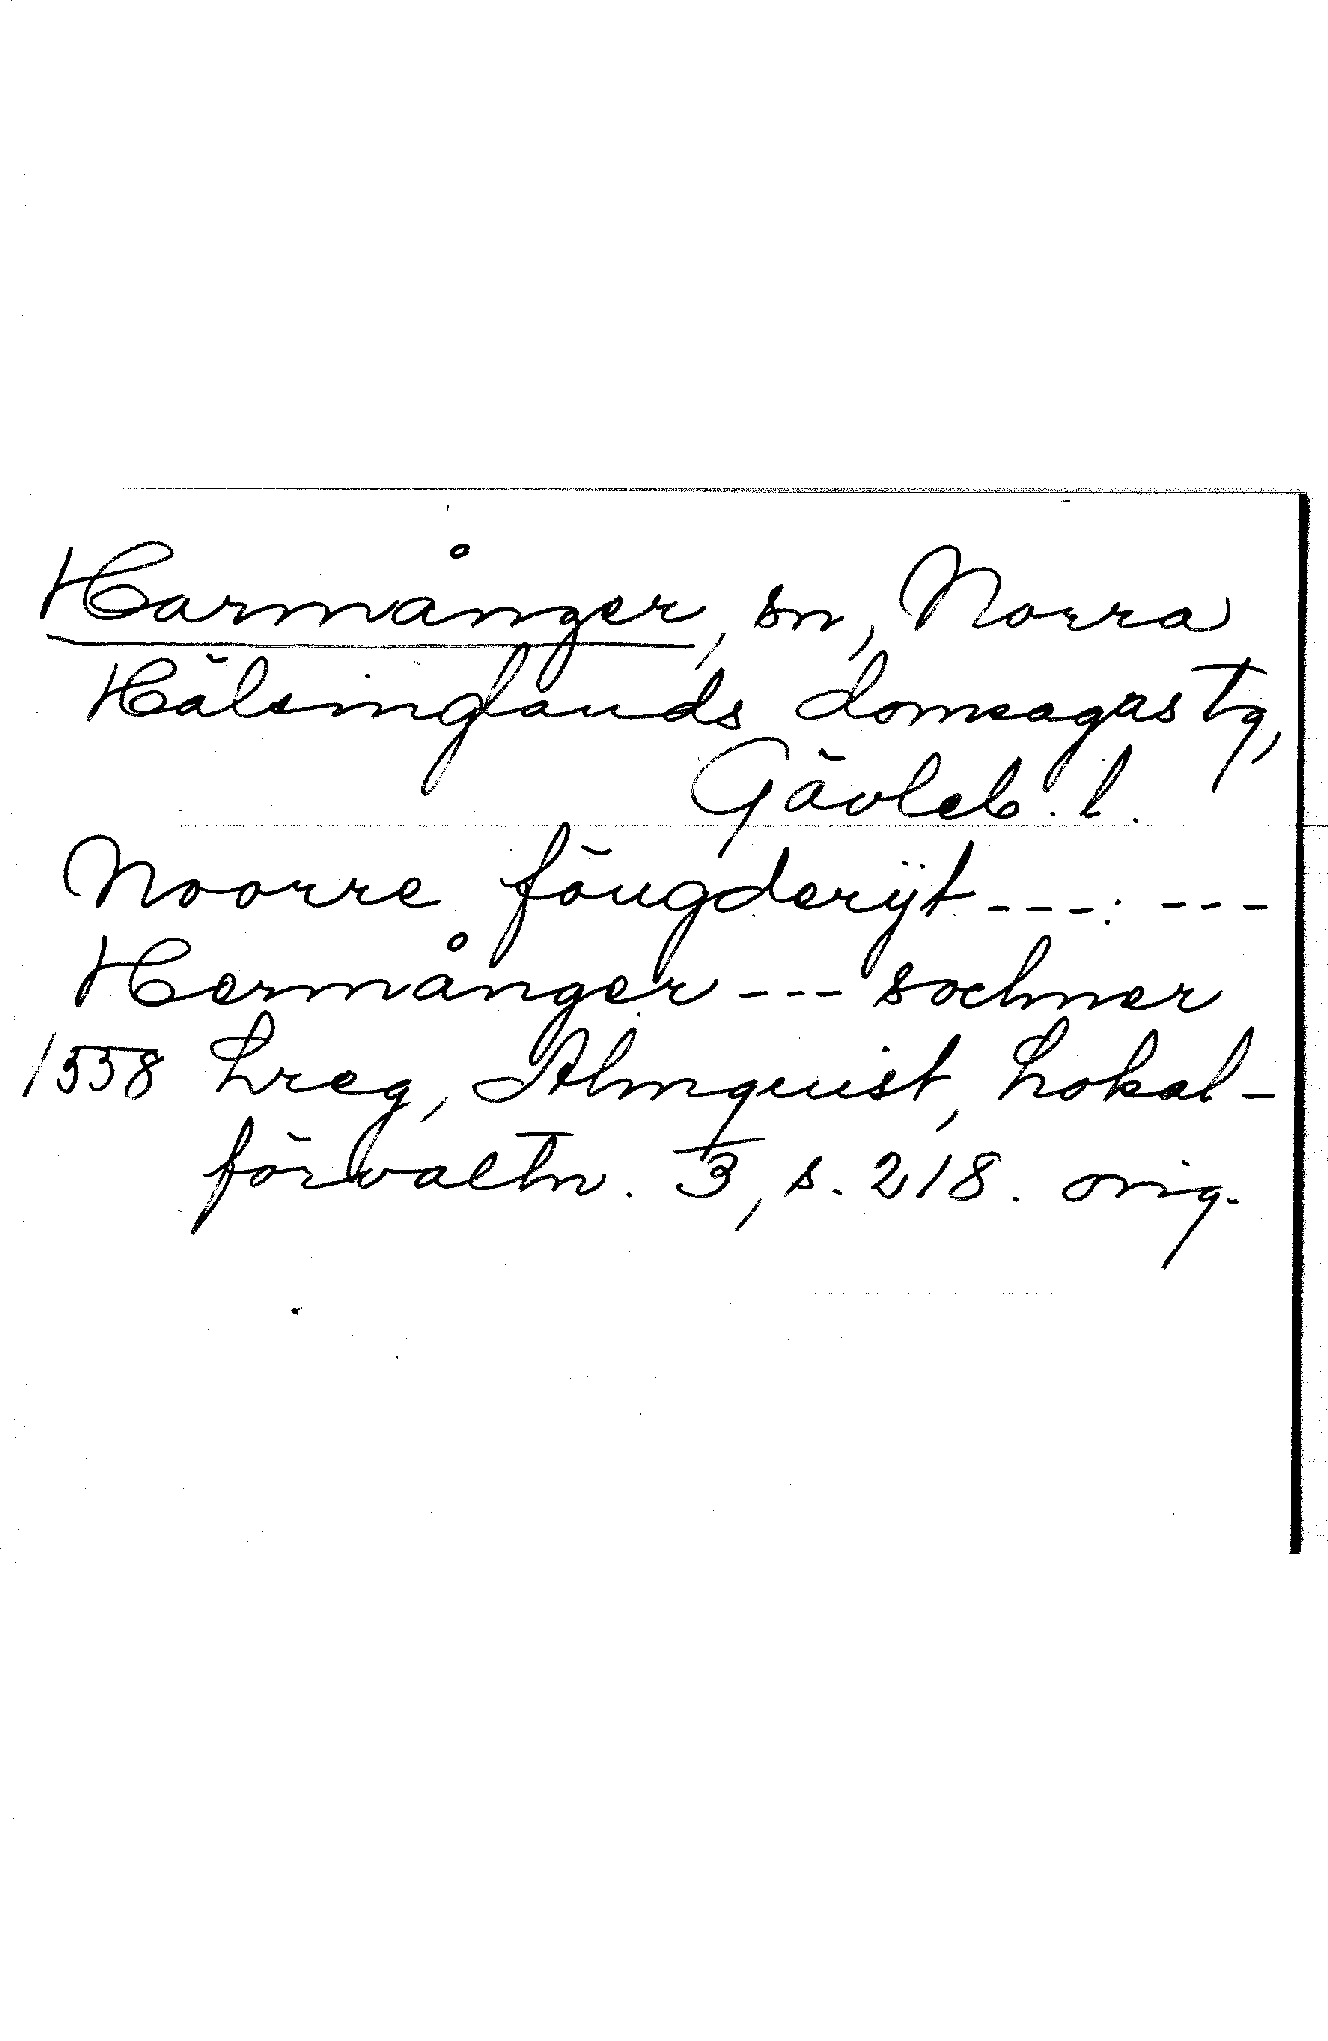 Harmånger, sn, Norra
Hälsinglands domsagas tg,
Gävleb. l.
Noorre föugderÿt ---: ---
Hermånger --- sochner
1558 Lreg, Almquist, Lokal-
förvaltn. 3, s. 218. orig.